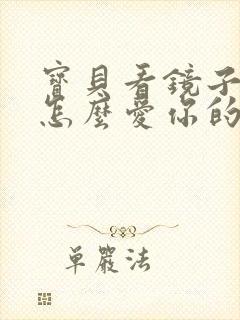 寶貝看鏡子
怎麼愛你的
單嚴法